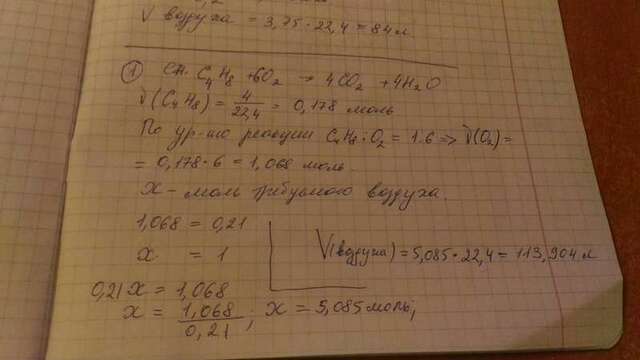 V воздуха = 3,75 · 22,4 = 84 л
① C₄H₈ + 6O₂ → 4CO₂ + 4H₂O
ν(C₄H₈) = 4/22,4 = 0,178 моль
По ур-ию реакции C₄H₈:O₂ = 1:6 => ν(O₂) =
= 0,178 · 6 = 1,068 моль.
X – моль требуемого воздуха.
1,068 = 0,21
X = 1
V(воздуха) = 5,085 · 22,4 = 113,904 л
0,21X = 1,068
X = 1,068/0,21 ; X = 5,085 моль;